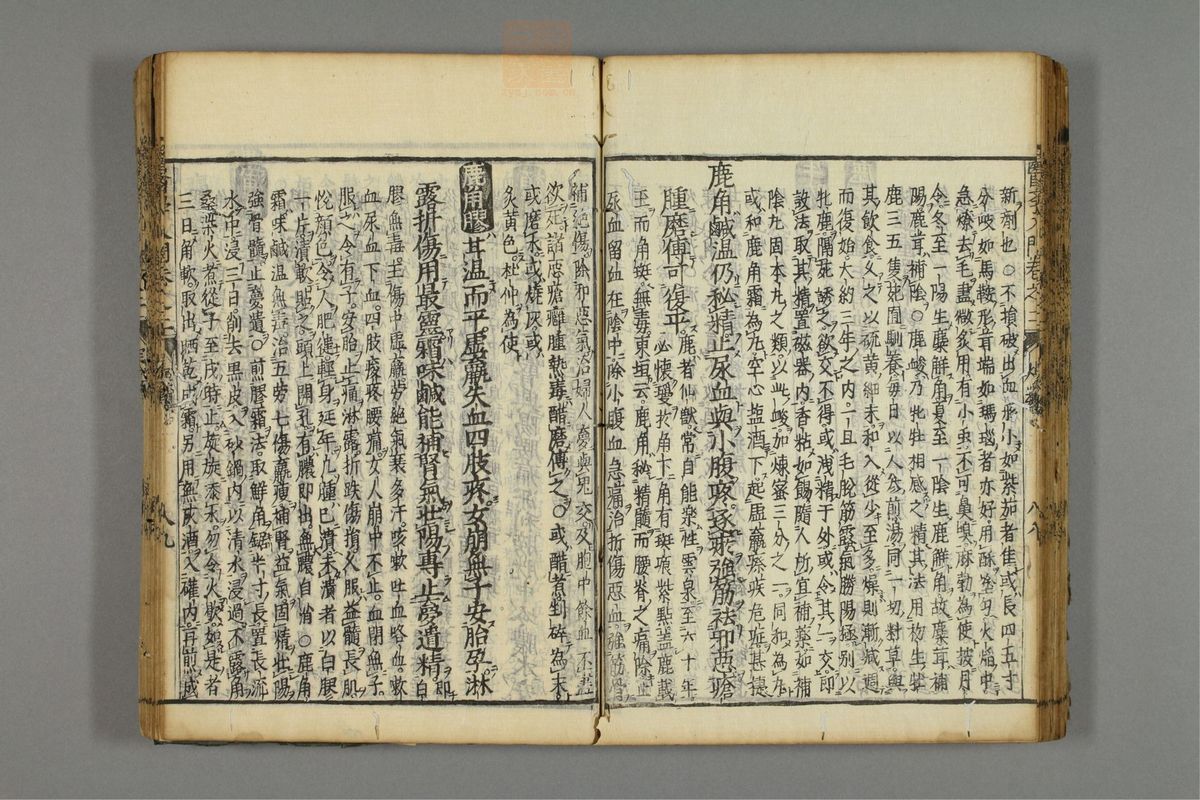 新劑也○不損破出血形小如紫茄者佳或長四五寸
分岐如馬鞍形茸端如瑪瑙者亦好用酥塗勻火焰中
急燎去毛盡微炙用有小虫不可鼻嗅麻勃為使披月
令冬至一陽生麋觧角夏至一陰生鹿觧角故麋茸補
陽鹿茸補陰○鹿峻乃牝牡相感之精其法用初生牡
鹿三五隻苑囿馴養每日以人參煎湯同一切艸草與
其飲食久之以硫黄細末和入從少至多燥則漸減週
而復始大約三年之內一旦毛脫筋露氣勝陽極别以
牝鹿隔苑誘之欲交不得或洩精于外或令其一交即
設法取其精置磁器內香粘如餳隨人所宜補藥如補
陰丸固本丸之類以此峻加煉蜜三分之一同和為丸
或和鹿角霜為丸空心塩酒下起虛羸瘵疾危
鹿角鹹温仍秘精止尿血與小腹疼逐鬼強筋祛卯惡瘡
腫磨傅可復平
鹿者仙獸常自能樂性雲泉至六十年
必懷瓊於角下角有斑痕紫點盖鹿戴
玉而角斑無毒東垣云鹿角秘精髓而腰脊之痛除止
尿血留血在陰中除小腹血急痛治折傷惡血強筋骨
補絶傷除卯惡氣治婦人夢與鬼交及胞中餘血不盡
欲死諸惡瘡癰腫熱毒醋磨傅之○或醋煮剉碎為末
或磨水或燒灰或
炙黄色杜仲為使
鹿角膠甘温而平虚羸失血四肢疼女崩無子安胎孕淋
露折傷用最靈霜味鹹能補腎氣壯陽專止夢遺精
即白
膠無毒主傷中虚羸勞絶氣衰多汗咳嗽吐血咯血嗽
血尿血下血四肢痠疼腰痛女人崩中不止血閉無子
服之令有子安胎止痛淋露折跌傷損久服益髓長肌
悅顔色令人肥健輕身延年凡腫已潰未潰者以白膠
一片漬軟貼之頭上開孔有膿即出無膿自消○鹿角
霜味鹹温無毒治五勞七傷羸瘦補腎益氣固精壯陽
強骨髓止夢遺○煎膠霜法取鮮角鋸半寸長置長流
水中浸三日削去黒皮入砂鍋內以清水浸過不露角
桑柴火煮從子至戌時止旋旋添水勿令火歇如是者
三日角軟取出晒乾成霜另用無灰酒入確內再煎成